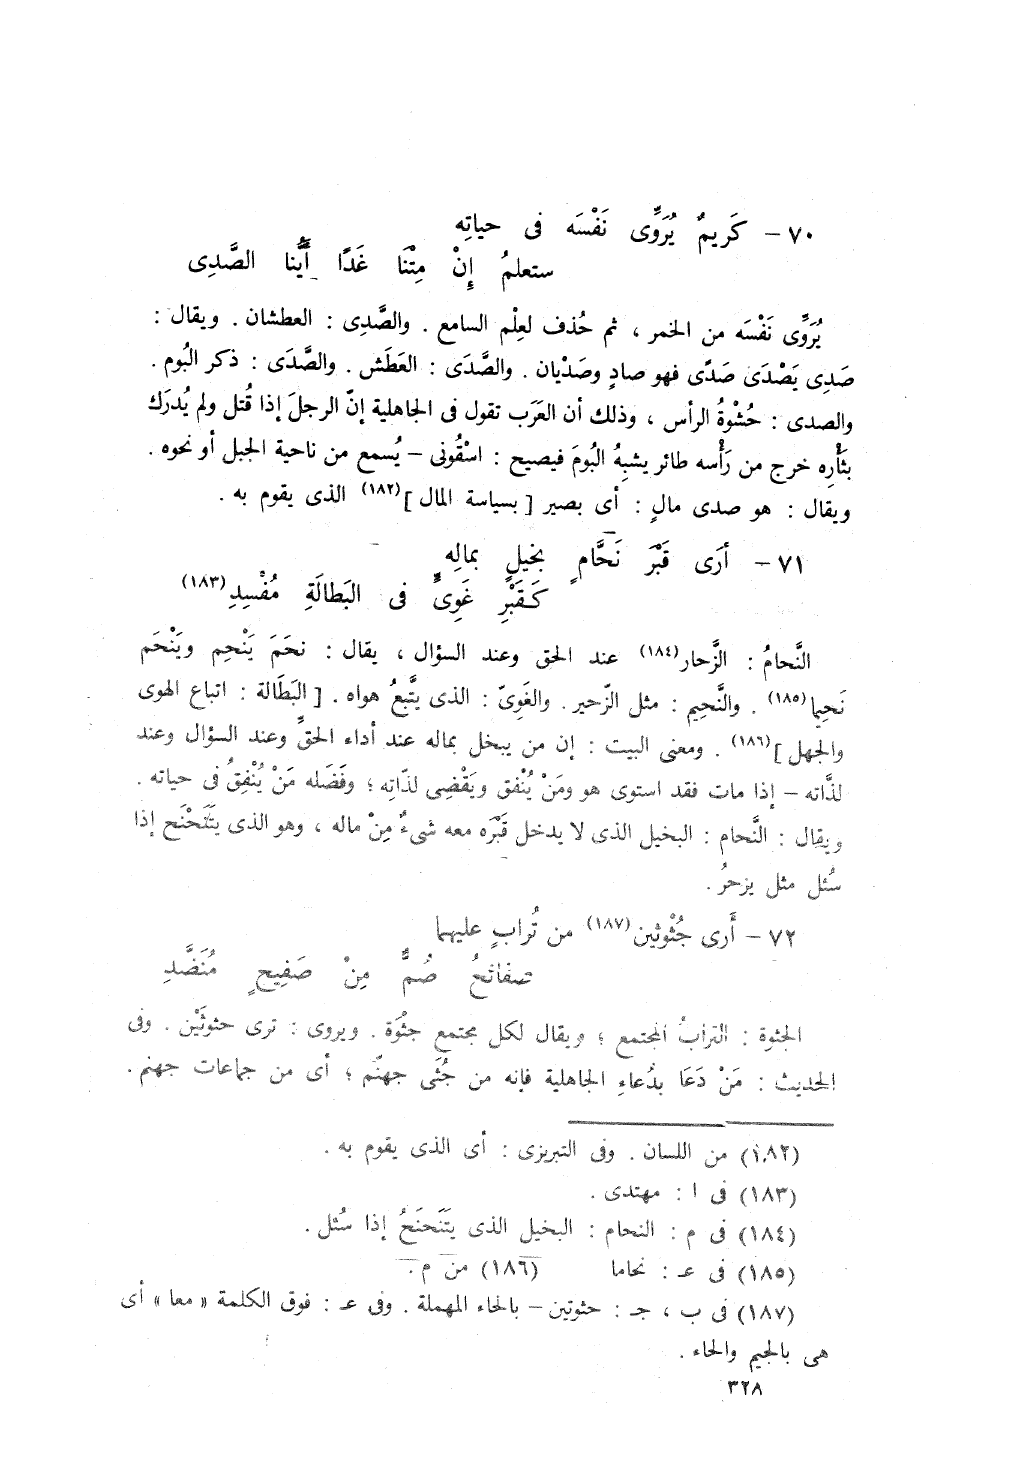 ٧٠ – كَريمٌ يُرَوِّى نَفْسَه فى حياتِه
ستعلمُ إِنْ مِتْنَا غَدًا أَيُّنا الصَّدِى
يُرَوِّى نَفْسَه من الخمر ، ثم حُذف لعِلْم السامع . والصَّدِى : العطشان . ويقال :
صَدِى يَصْدَى صَدًى فهو صادٍ وصَدْيان . والصَّدَى : العَطَش . والصَّدَى : ذكر البُوم .
والصدى : حُشْوةُ الرأس ، وذلك أن العَرَب تقول فى الجاهلية إنّ الرجلَ إذا قُتل ولم يُدرَك
بثَأْرِه خرج من رَأْسه طائر يشبِهُ البُومَ فيصيح : اسْقُونى – يُسمع من ناحية الجبل أو نحوه .
ويقال : هو صدى مالٍ : أى بصير [ بسياسة المال ](١٨٢) الذى يقوم به .
٧١ – أرَى قَبْرَ نَحَّامٍ بخيلٍ بمالِه
كَقَبْرِ غَوِىٍّ فى البَطالَةِ مُفْسِدِ(١٨٣)
النَّحامُ : الزَّحار(١٨٤) عند الحق وعند السؤال ، يقال : نحَمَ يَنْحِم ويَنْحَم
نَحِيما(١٨٥) . والنَّحِيم : مثل الزّحير . والغَوِىّ : الذى يتَّبعُ هواه . [ البَطَالة : اتباع الهوى
والجهل ](١٨٦) . ومعنى البيت : إن من يبخل بماله عند أداء الحقِّ وعند السؤال وعند
لذّاته – إذا مات فقد استوى هو ومَنْ يُنْفق ويَقْضِى لذّاتِه ؛ وفَضَله مَنْ يُنْفِقُ فى حياته .
ويقال : النَّحام : البخيل الذى لا يدخل قَبْرَه معه شىءٌ مِنْ ماله ، وهو الذى يتَنَحْنَح إذا
سُئل مثل يزحرُ .
٧٢ – أَرى جُثْوتين(١٨٧) من تُرابٍ عليهما
صفائحُ صُمٌّ مِنْ صَفِيحٍ مُنَضَّدِ
الجثوة : الترابُ المجتمع ؛ ويقال لكل مجتمع جثْوَة . ويروى : ترى حثوتَيْن . وفى
الحديث : مَنْ دَعَا بدُعاءِ الجاهلية فإنه من جُثَى جهنّم ؛ أى من جماعات جهنم .
(١٨٢) من اللسان . وفى التبريزى : أى الذى يقوم به .
(١٨٣) فى ا : مهتدى .
(١٨٤) فى م : النحام : البخيل الذى يتَنَحنَحُ إذا سُئل .
(١٨٥) فى عـ : نحاما (١٨٦) من م .
(١٨٧) فى ب ، جـ : حثوتين – بالحاء المهملة . وفى عـ : فوق الكلمة « معا » أى
هى بالجيم والحاء .
٣٢٨